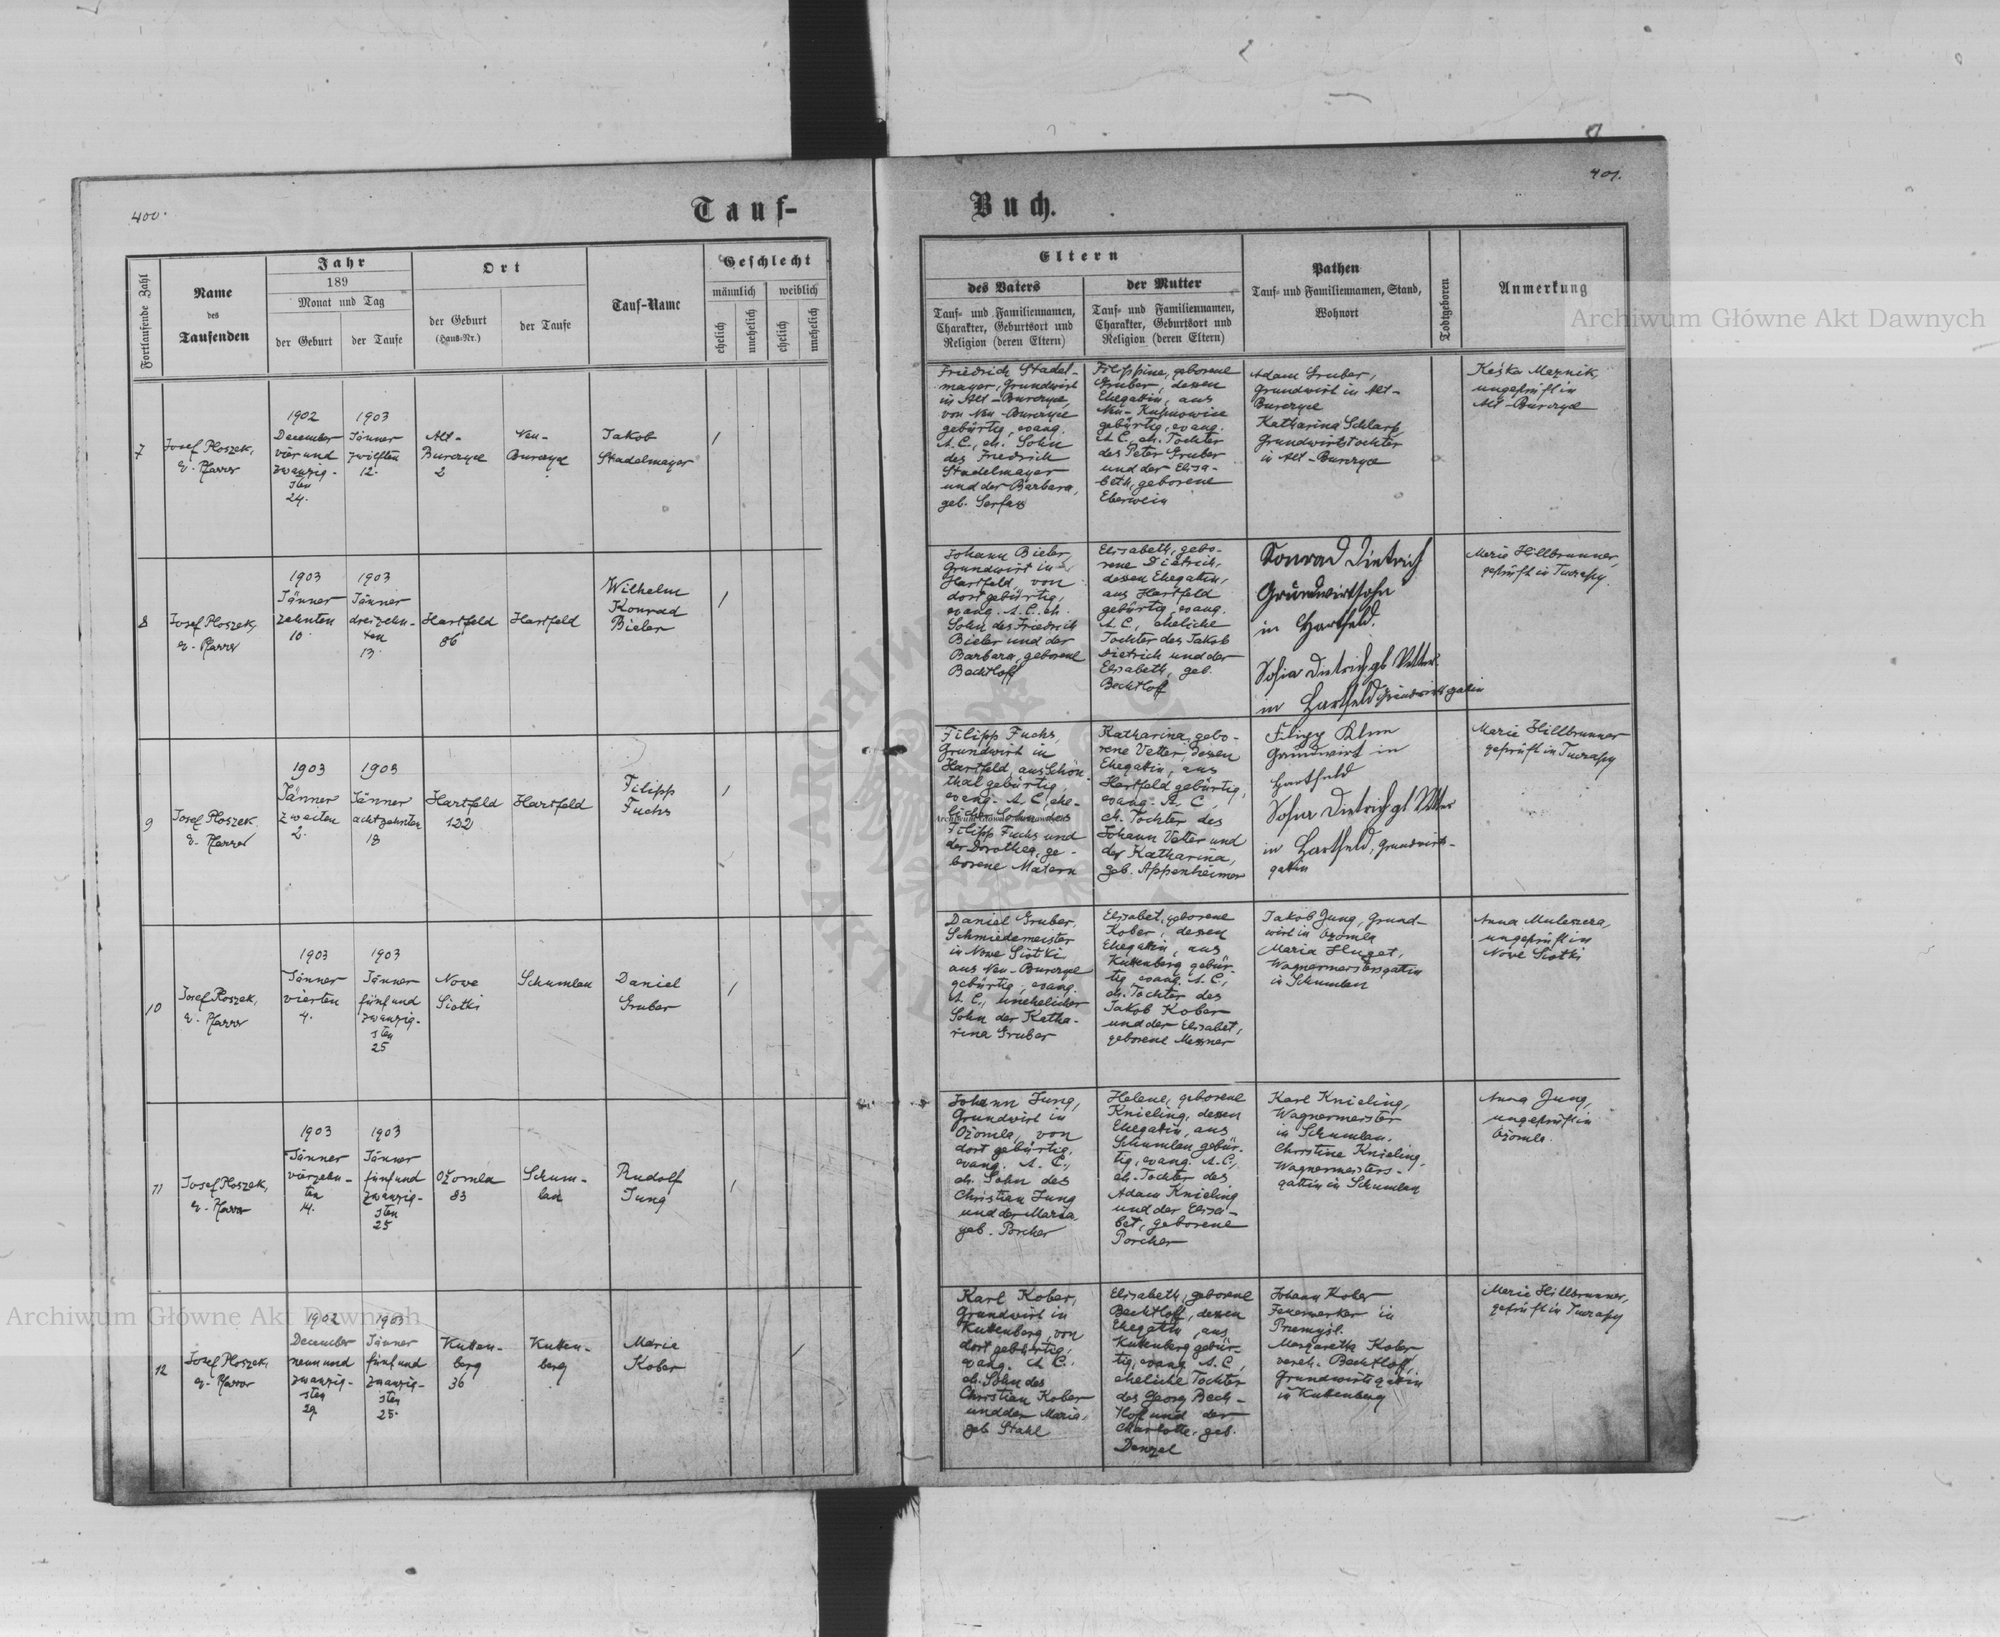 400.
401.
Tauf-
Buch.
Fortlaufende Zahl
Name
des
Taufenden
Jahr
189
Monat und Tag
der Geburt
der Taufe
Ort
der Geburt
(Haus-Nr.)
der Taufe
Tauf-Name
Geschlecht
männlich
weiblich
ehelich
unehelich
ehelich
unehelich
Eltern
des Vaters
Tauf- und Familiennamen,
Charakter, Geburtsort und
Religion (deren Eltern)
der Mutter
Tauf- und Familiennamen,
Charakter, Geburtsort und
Religion (deren Eltern)
Pathen
Tauf- und Familiennamen, Stand,
Wohnort
Todtgeboren
Anmerkung
Archiwum Główne Akt Dawnych
7
Josef Ploszek,
ev. Pfarrer
1902
December
vierund
zwanzig-
sten
24.
1903
Jänner
zwölften
12.
Alt-
Burczyce
2
Neu-
Burczyce
Jakob
Stadelmayer
1
Friedrich Stadel-
mayer, Grundwirt
in Alt-Burczyce,
von Neu-Burczyce
gebürtig, evang.
A. C., eh. Sohn
des Friedrich
Stadelmayer
und der Barbara,
geb. Serfas
Filippine, geborene
Gruber, dessen
Ehegattin, aus
Neu-Kupnowice
gebürtig, evang.
A. C., eh. Tochter
des Peter Gruber
und der Elisa-
beth, geborene
Eberwein
Adam Gruber,
Grundwirt in Alt-
Burczyce
Katharina Schlarp
Grundwirtstochter
in Alt-Burczyce
Keśka Meznik,
ungeprüft in
Alt-Burczyce
8
Josef Ploszek,
ev. Pfarrer
1903
Jänner
zehnten
10.
1903
Jänner
dreizehn-
ten
13.
Hartfeld
86
Hartfeld
Wilhelm
Konrad
Bieler
1
Johann Bieler,
Grundwirt in
Hartfeld, von
dort gebürtig,
evang. A. C., eh.
Sohn des Friedrich
Bieler und der
Barbara, geborene
Bechtloff
Elisabeth, gebo-
rene Dietrich,
dessen Ehegattin,
aus Hartfeld
gebürtig, evang.
A. C., eheliche
Tochter des Jakob
Dietrich und der
Elisabeth, geb.
Bechtloff
Konrad Dietrich
Grundwirtsohn
in Hartfeld.
Sofia Dietrich gb Vetter
in Hartfeld Grundwirtsgatin
Marie Hillbrunner,
geprüft in Tuczapy
9
Josef Ploszek,
ev. Pfarrer
1903
Jänner
zweiten
2.
1903
Jänner
achtzehnten
18
Hartfeld
122
Hartfeld
Filipp
Fuchs
1
Filipp Fuchs,
Grundwirt in
Hartfeld, aus Schön-
thal gebürtig,
evang. A. C., ehe-
licher Sohn des
Filipp Fuchs und
der Dorothea, ge-
borene Matern
Katharina, gebo-
rene Vetter, dessen
Ehegattin, aus
Hartfeld gebürtig,
evang. A. C.,
eh. Tochter des
Johann Vetter und
der Katharina,
geb. Appenheimer
Grundwirt in
Hartfeld
Sofia Dietrich gb Vetter
in Hartfeld, Grundwirts-
gatin
Marie Hillbrunner
geprüft in Tuczapy
10
Josef Ploszek,
ev. Pfarrer
1903
Jänner
vierten
4.
1903
Jänner
fünfund
zwanzig-
sten
25
Nowe
Siołki
Schumlau
Daniel
Gruber
1
Daniel Gruber,
Schmiedemeister
in Nowe Siołki
aus Neu-Burczyce
gebürtig, evang.
A. C., unehelicher
Sohn der Katha-
rina Gruber
Elisabet, geborene
Kober, dessen
Ehegattin, aus
Kuttenberg gebür-
tig, evang. A. C.,
eh. Tochter des
Jakob Kober
und der Elisabet,
geborene Messner
Jakob Jung, Grund-
wirt in Ożomla
Maria Huget,
Wagnermeistersgattin
in Schumlau
Anna Muleszera,
ungeprüft in
Nowe Siołki
11
Josef Ploszek,
ev. Pfarrer
1903
Jänner
vierzehn-
ten
14.
1903
Jänner
fünfund
zwanzig-
sten
25
Ożomla
83
Schum-
lau
Rudolf
Jung
1
Johann Jung,
Grundwirt in
Ożomla, von
dort gebürtig,
evang. A. C.,
eh. Sohn des
Christian Jung
und der Maria,
geb. Porcher
Helene, geborene
Knieling, dessen
Ehegattin, aus
Schumlau gebür-
tig, evang. A. C.,
eh. Tochter des
Adam Knieling
und der Elisa-
bet, geborene
Porcher
Karl Knieling,
Wagnermeister
in Schumlau.
Christine Knieling,
Wagnermeisters-
gattin in Schumlau
Anna Jung,
ungeprüft in
Ożomla.
12
Josef Ploszek,
ev. Pfarrer
1902
December
neunund
zwanzig-
sten
29.
1903
Jänner
fünfund
zwanzig-
sten
25.
Kutten-
berg
36
Kutten-
berg
Marie
Kober
1
Karl Kober,
Grundwirt in
Kuttenberg, von
dort gebürtig,
evang. A. C.
eh. Sohn des
Christian Kober
und der Maria,
geb. Stahl
Elisabeth, geborene
Bechtloff, dessen
Ehegattin, aus
Kuttenberg gebür-
tig, evang. A. C.,
eheliche Tochter
des Georg Bech-
tloff und der
Charlotte, geb.
Denzel
Johann Kober
Feuerwerker in
Przemyśl.
Margaretha Kober
vereh. Bechtloff,
Grundwirtsgattin
in Kuttenberg
Marie Hillbrunner,
geprüft in Tuczapy
Archiwum Główne Akt Dawnych